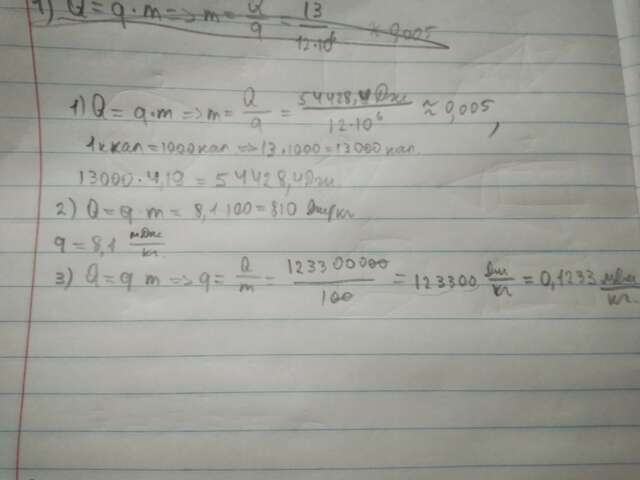 1) Q = q·m => m = Q/q = 13/12·10⁶ ≈ 0,005
1) Q = q·m => m = Q/q = 54428,4 Дж/12·10⁶ ≈ 0,005,
1ккал = 1000кал => 13·1000 = 13000 кал.
13000·4,19 = 54428,4 Дж.
2) Q = q m = 8,1 100 = 810 Дж/кг
q = 8,1 мДж/кг.
3) Q = q m => q = Q/m = 123300000/100 = 123300 Дж/кг = 0,1233 мДж/кг.